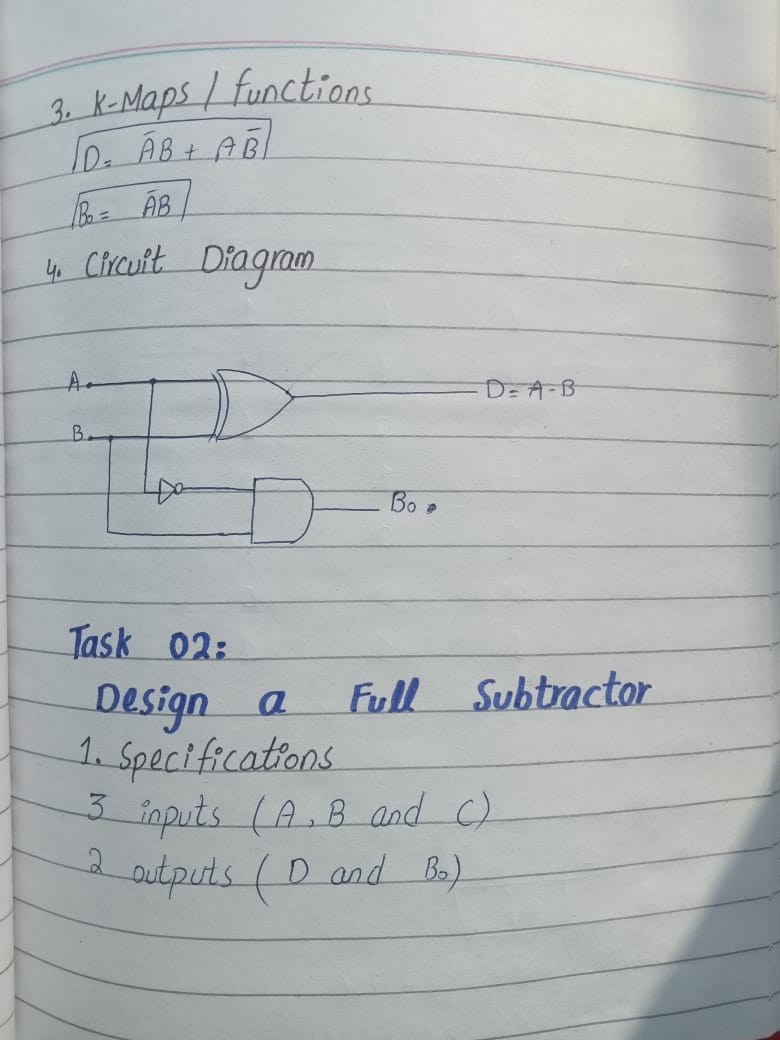 3. K-Maps / functions
D= ĀB + AB̄
B₀ = ĀB
4. Circuit Diagram
A
D= A-B
B
B₀
Task 02:
Design a Full Subtractor
1. Specifications
3 inputs (A, B and C)
2 outputs ( D and B₀)